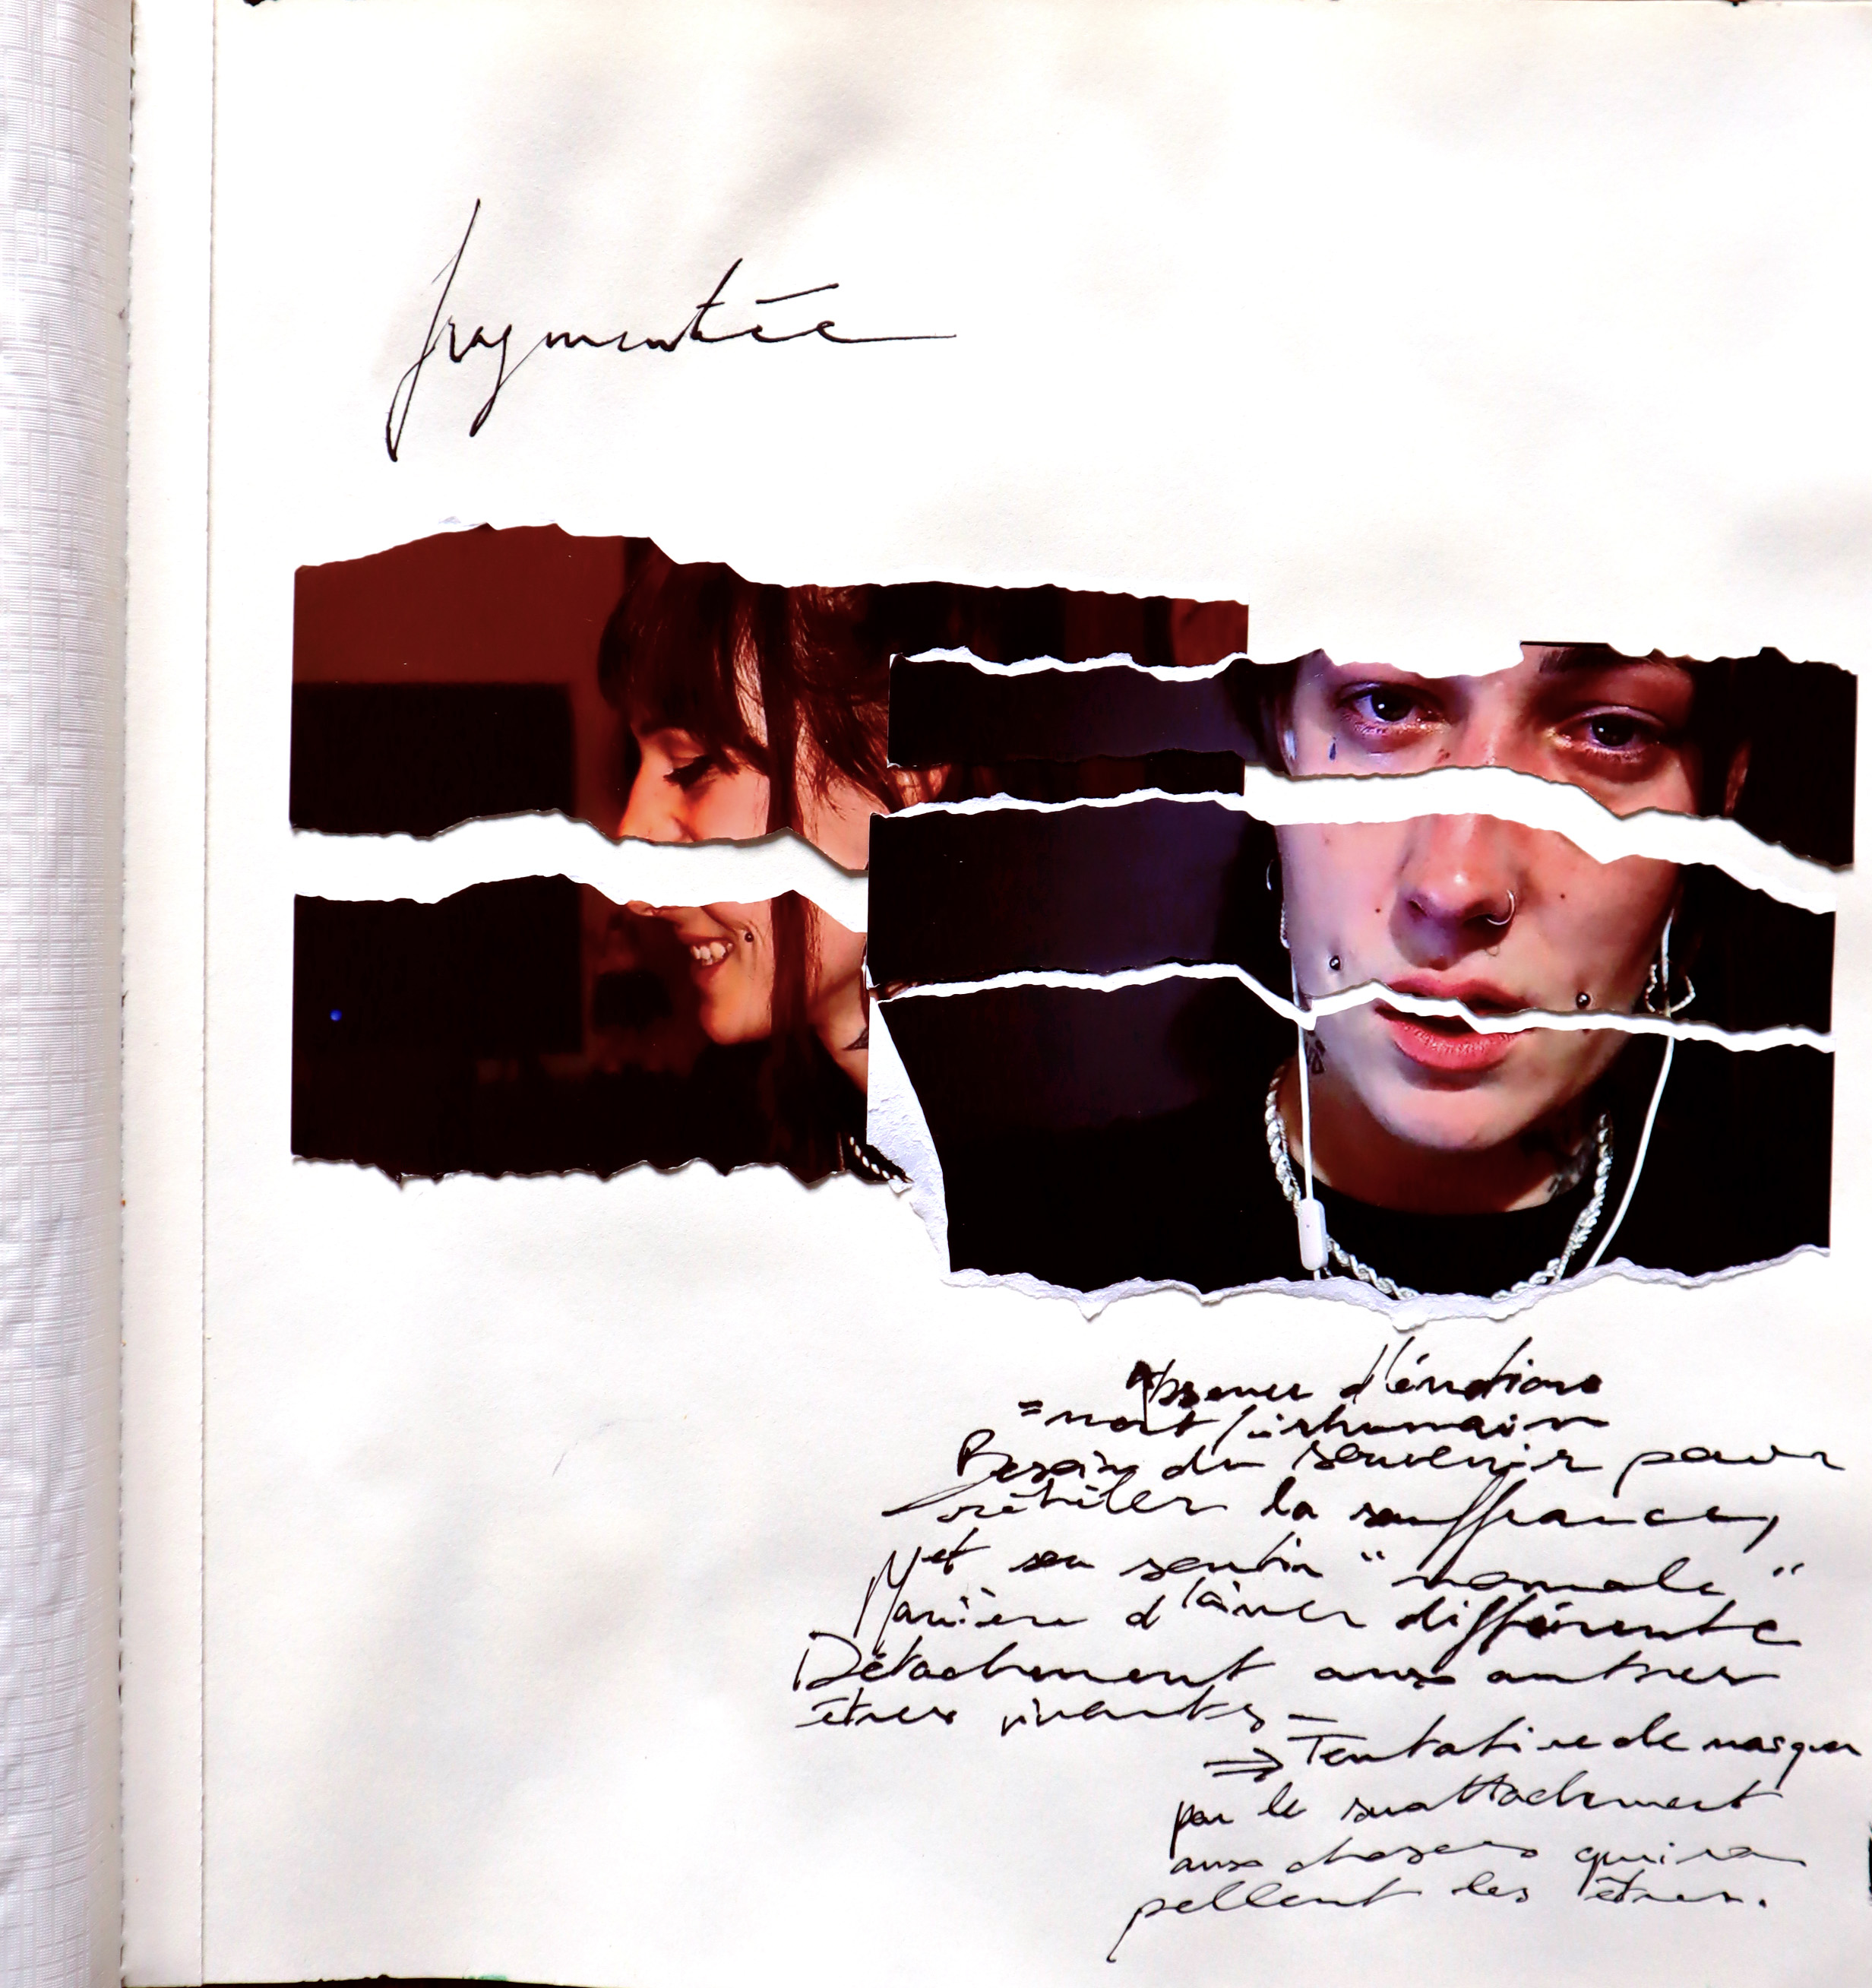 fragmentée
Absence d'émotions
= mort / inhumain
Besoin du souvenir pour
la souffrance,
et se sentir "normale"
Manière d'aimer différente
Détachement aux autres
êtres vivants -
⇒ Tentative de masquer
par le surattachement
aux choses qui ra
pellent les êtres.